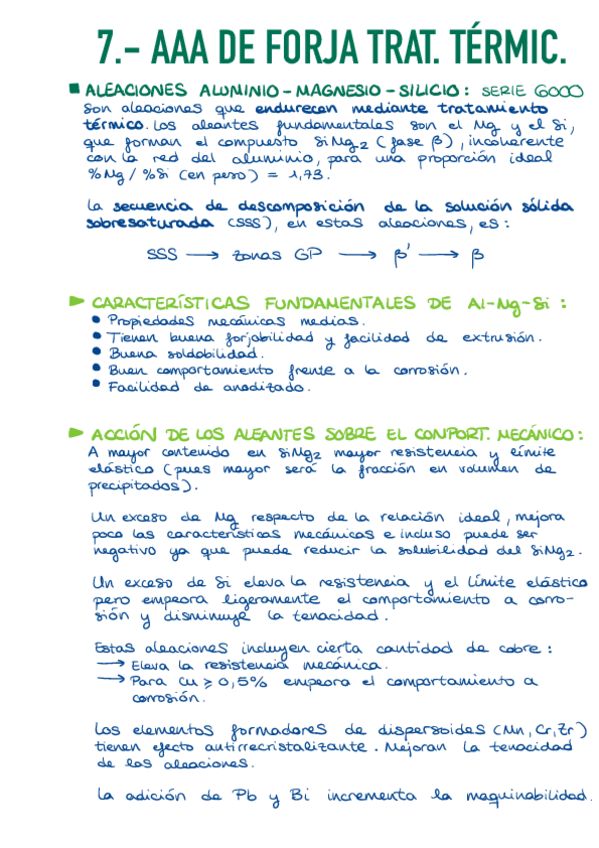 7.- AAA DE FORJA TRAT. TÉRMIC.
ALEACIONES ALUMINIO-MAGNESIO-SILICIO: SERIE 6000
Son aleaciones que endurecen mediante tratamiento
térmico. Los aleantes fundamentales son el Mg y el Si,
que forman el compuesto SiMg2 (fase β), incoherente
con la red del aluminio, para una proporción ideal
%Mg / %Si (en peso) = 1,73.
La secuencia de descomposición de la solución sólida
sobresaturada (SSS), en estas aleaciones, es:
SSS → zonas GP → β' → β
CARACTERÍSTICAS FUNDAMENTALES DE Al-Mg-Si:
• Propiedades mecánicas medias.
• Tienen buena forjabilidad y facilidad de extrusión.
• Buena soldabilidad.
• Buen comportamiento frente a la corrosión.
• Facilidad de anodizado.
ACCIÓN DE LOS ALEANTES SOBRE EL COMPORT. MECÁNICO:
A mayor contenido en SiMg2 mayor resistencia y límite
elástico (pues mayor será la fracción en volumen de
precipitados).
Un exceso de Mg respecto de la relación ideal, mejora
poco las características mecánicas e incluso puede ser
negativo ya que puede reducir la solubilidad del SiMg2.
Un exceso de Si eleva la resistencia y el límite elástico
pero empeora ligeramente el comportamiento a corro-
sión y disminuye la tenacidad.
Estas aleaciones incluyen cierta cantidad de cobre:
→ Eleva la resistencia mecánica.
→ Para Cu ⩾ 0,5% empeora el comportamiento a
corrosión.
Los elementos formadores de dispersoides (Mn, Cr, Zr)
tienen efecto antirrecristalizante. Mejoran la tenacidad
de las aleaciones.
La adición de Pb y Bi incrementa la maquinabilidad.